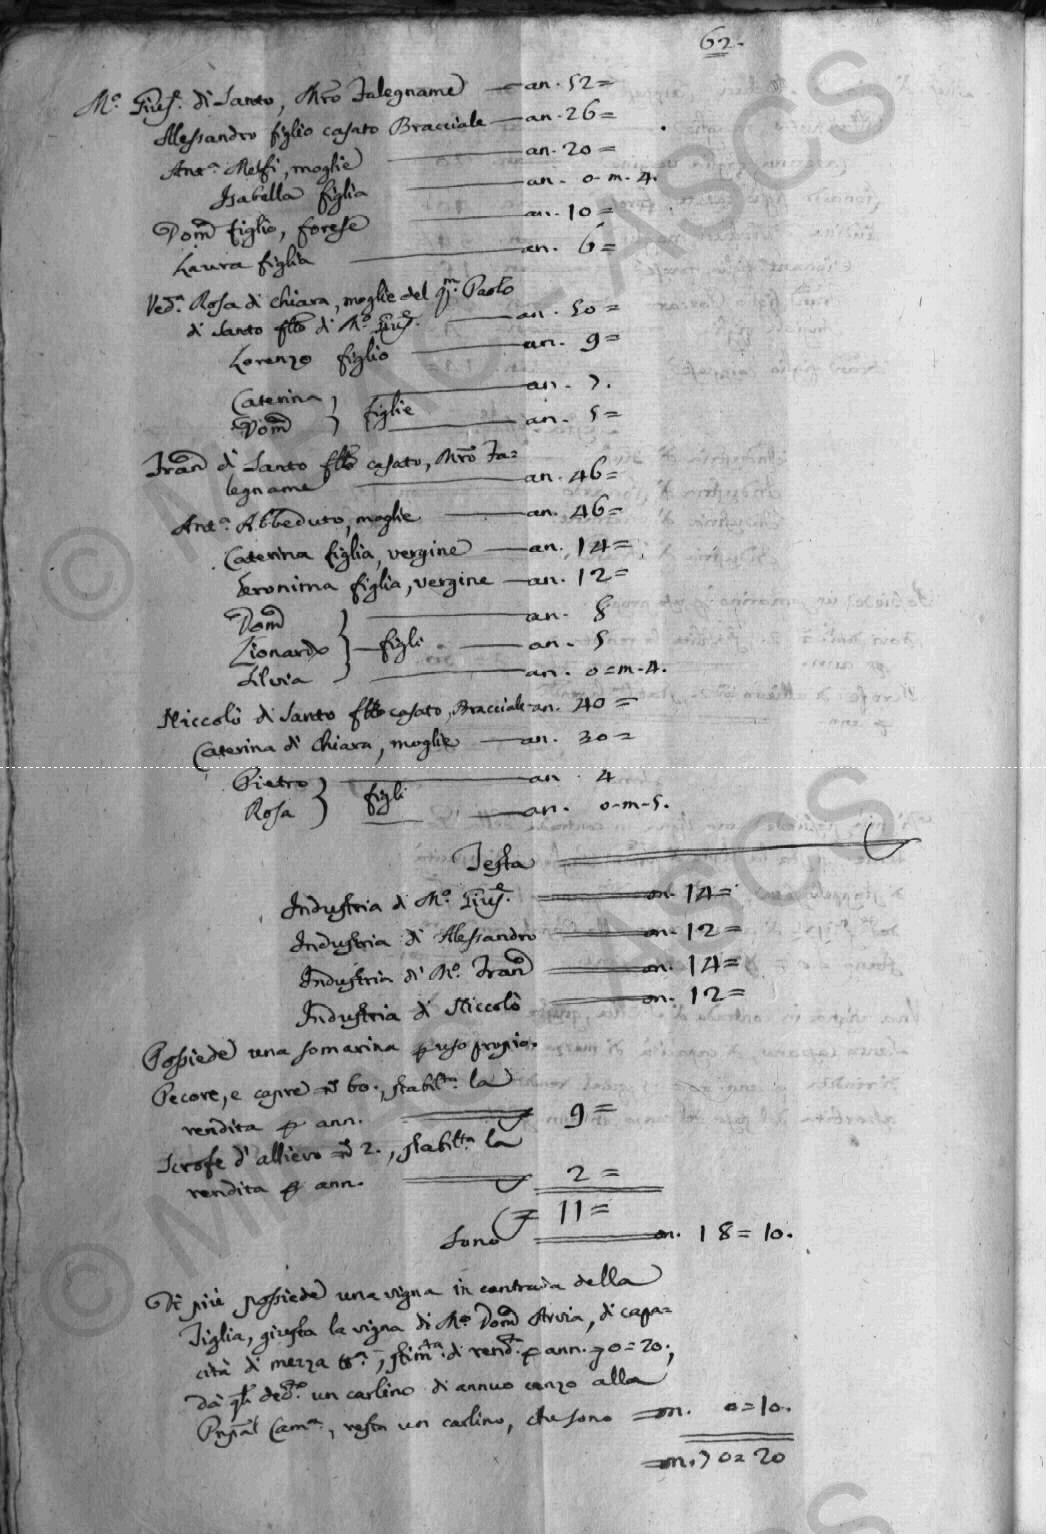 62.
M.º Gius.e di Santo, Mro Falegname — an. 52=
Alessandro figlio casato Bracciale — an. 26=
Ant.a Melfi, moglie — an. 20=
Isabella figlia — an. 0-m-4.
Dom.o figlio, forese — an. 10=
Laura figlia — an. 6=
Ved.a Rosa di Chiara, moglie del qm. Paolo
di Santo fllo di M.º Gius.e — an. 50=
Lorenzo figlio — an. 9=
Caterina, } figlie — an. 7.
Dom.a } — an. 5=
Fran.o di Santo fllo casato, Mro Fa=
legname — an. 46=
Ant.a Abbeduto, moglie — an. 46=
Caterina figlia, vergine — an. 14=
Geronima figlia, vergine — an. 12=
Dom.o } — an. 8
Lionardo } figli — an. 5
Silvia } — an. 0=m-4.
Niccolò di Santo fllo casato, Bracciale an. 40=
Caterina di Chiara, moglie — an. 30=
Pietro } figli — an. 4
Rosa } — an. 0-m-5.
Testa
Industria di M.º Gius.e — on. 14=
Industria di Alessandro — on. 12=
Industria di M.º Fran.o — on. 14=
Industria di Niccolò — on. 12=
Possiede una somarina p uso proprio.
Pecore, e capre nº 60., stabil.ta la
rendita p ann. 9=
Scrofe d'allievo nº 2., stabil.ta la
rendita p ann. 2=
11=
Sono — on. 18=10.
Di più possiede una vigna in contrada della
Tiglia, giusta la vigna di M.º Dom.o Arvia, di capa=
cità di mezza, stim.ta di rend.a p ann. 0=20.,
da qli ded.o un carlino di annuo cenzo alla
Pnpal Cam.a, resta un carlino, che sono — on. 0=10.
on. 70=20
© MIBAC - ASCS
© MIBAC - ASCS